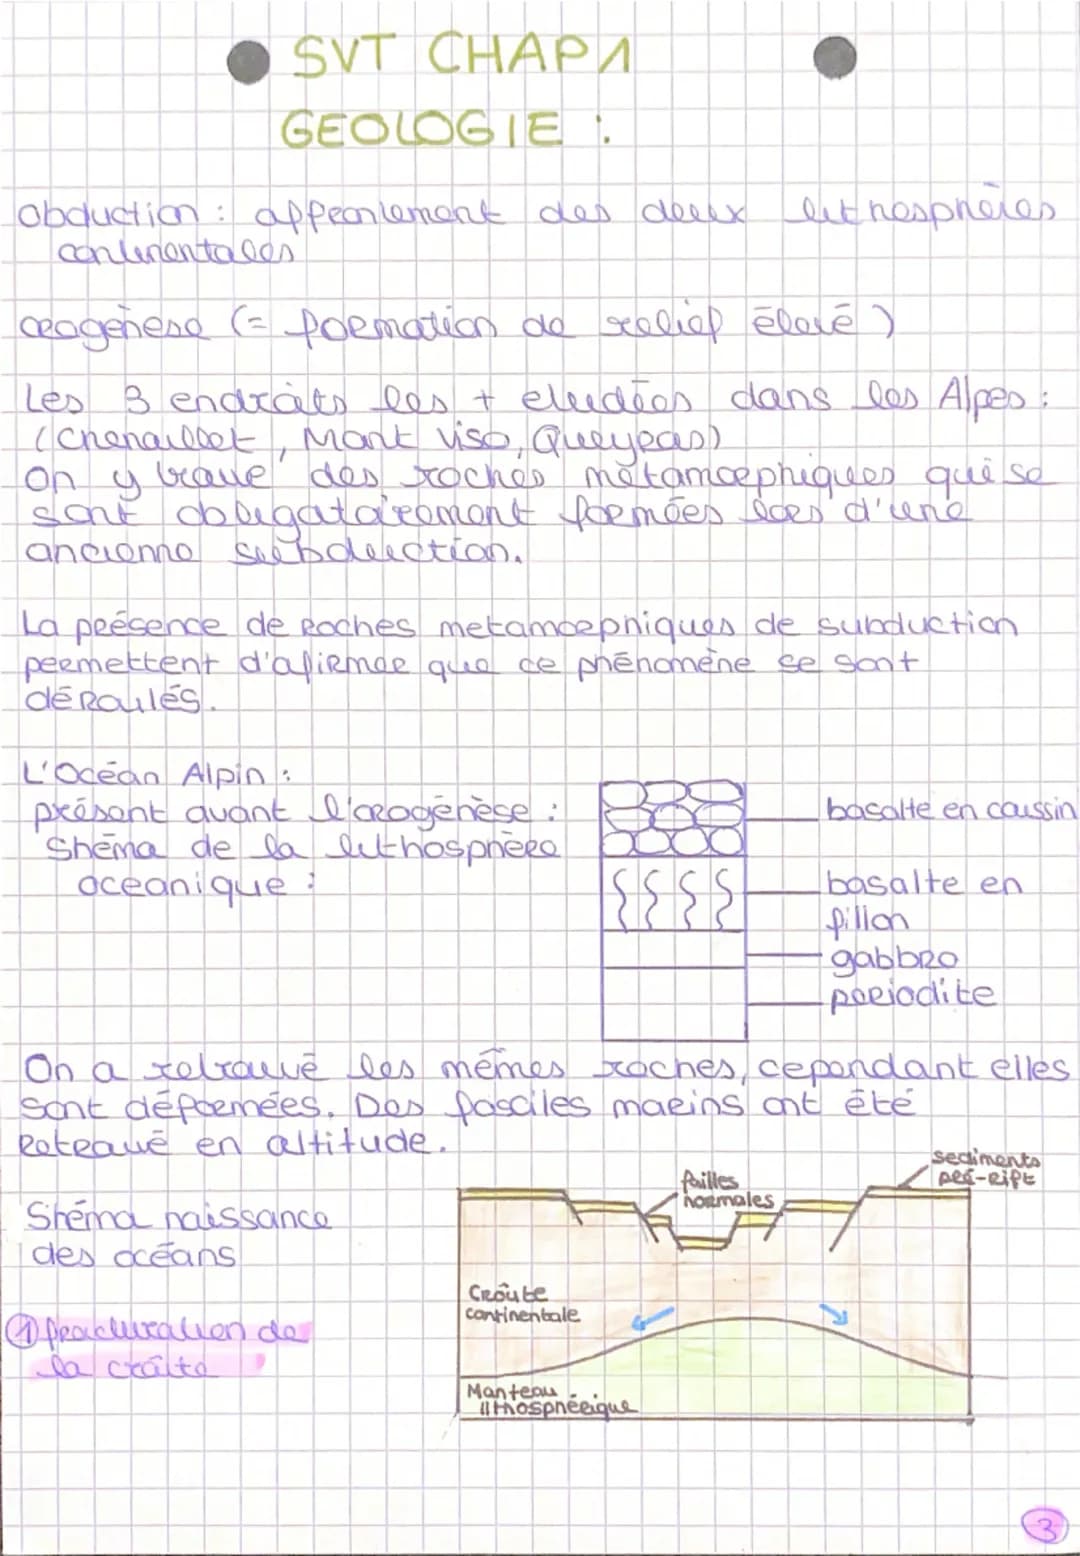 SVT CHAP1
GEOLOGIE :
Obduction : affrontement des deux lithosphères
continentales
orogenèse (= formation de relief élevé)
Les 3 endroits les + étudiées dans les Alpes :
(Chenaillet, Mont viso, Queyras)
On y trouve des roches métamorphiques qui se
sont obligatoirement formées lors d'une
ancienne subduction.
La présence de Roches métamorphiques de subduction
permettent d'afirmer que ce phénomène se sont
déroulés.
L'Océan Alpin :
présent avant l'orogénèse :
Shéma de la lithosphère
oceanique :
basalte en coussin
basalte en
fillon
gabbro
periodite
On a retrouvé les mêmes roches, cependant elles
sont déformées. Des fossiles marins ont été
Retrouvé en altitude.
sediments
pré-rift
failles
normales
Shéma naissance
des océans
Croûte
continentale
① fracturation de
la croûte
Manteau
lithosphérique
3